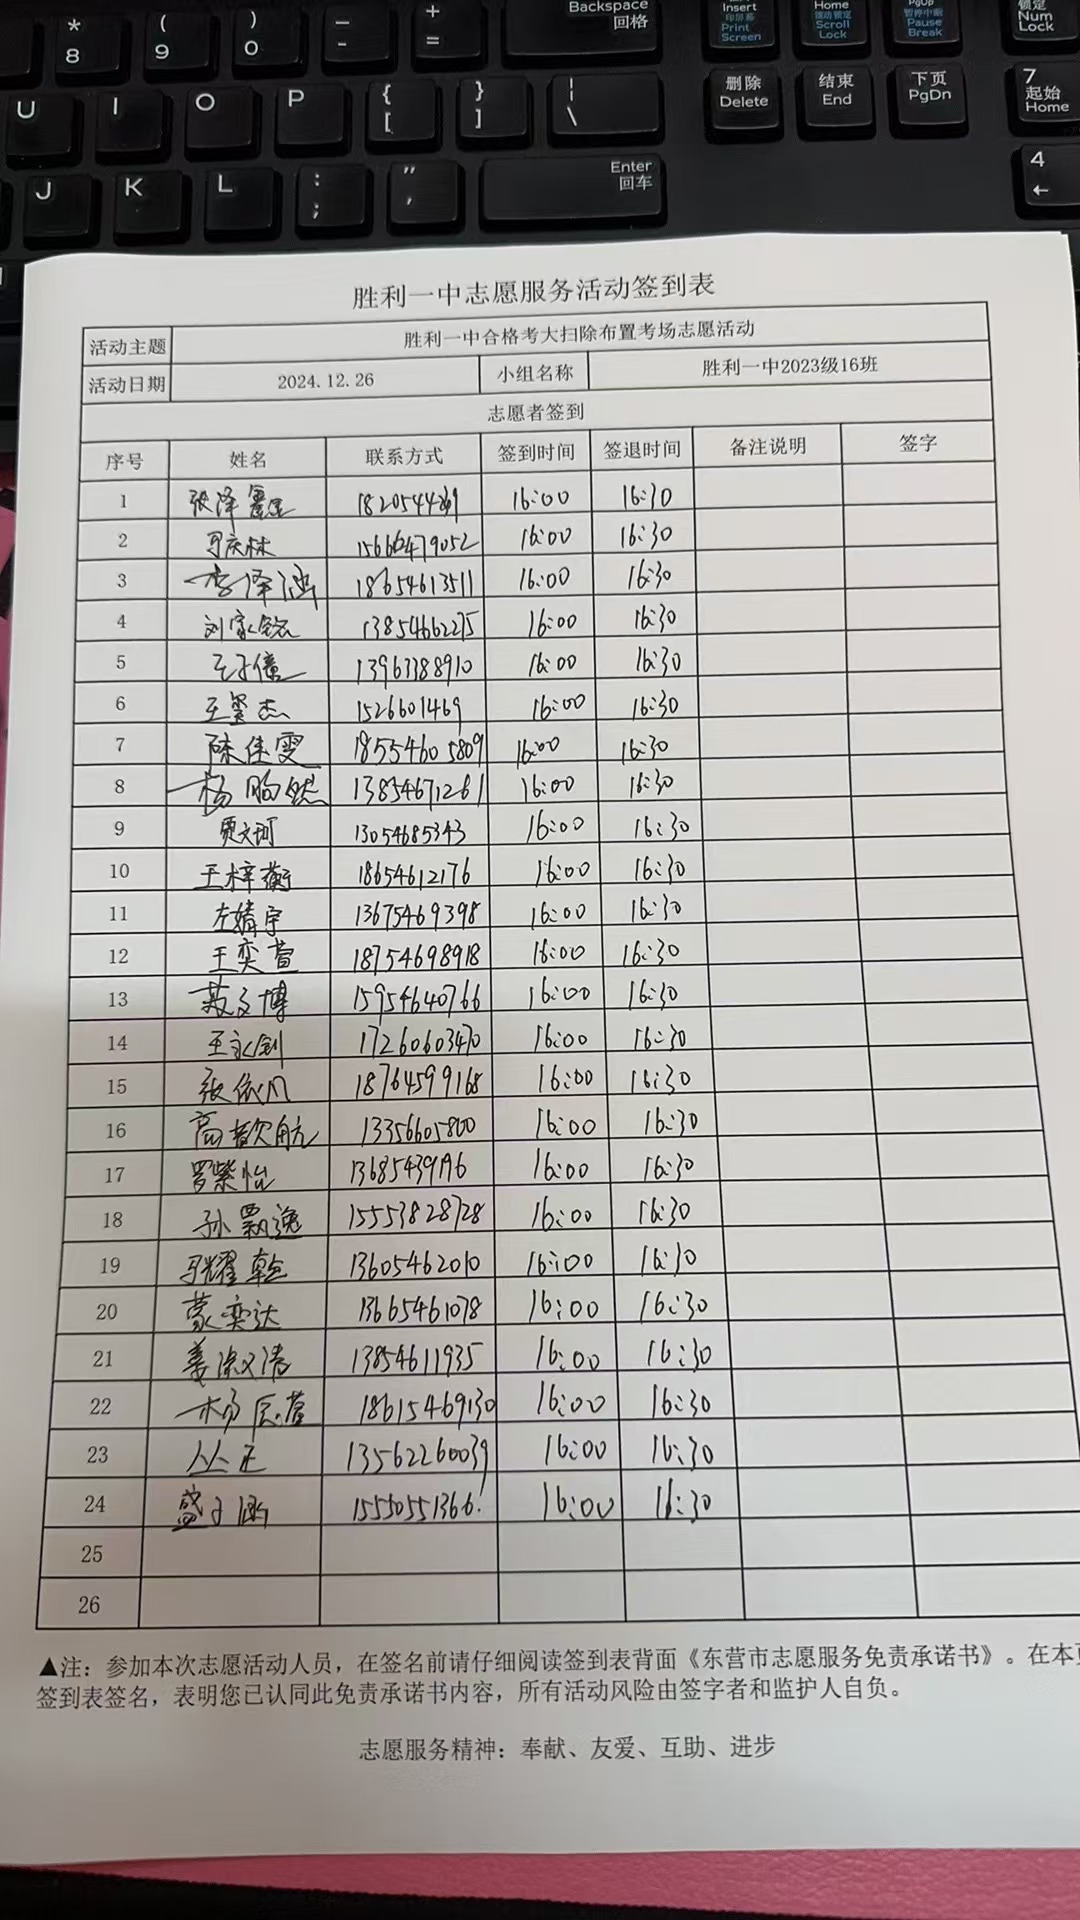 * 8
( 9
) 0
_ -
+ =
Backspace 回格
Insert 印屏幕 Print Screen
Home 滚动锁定 Scroll Lock
PgUp 暂停中断 Pause Break
锁定 Num Lock
U
I
O
P
{ [
} ]
| \
删除 Delete
结束 End
下页 PgDn
7 起始 Home
J
K
L
: ;
" '
Enter 回车
4 ←
胜利一中志愿服务活动签到表
活动主题 胜利一中合格考大扫除布置考场志愿活动
活动日期 2024.12.26 小组名称 胜利一中2023级16班
志愿者签到
序号 姓名 联系方式 签到时间 签退时间 备注说明 签字
1 张泽鑫 1820544269 16:00 16:30
2 司庆林 15666479052 16:00 16:30
3 李泽涵 18654613511 16:00 16:30
4 刘家铭 13854662275 16:00 16:30
5 王子僮 13963388910 16:00 16:30
6 王玺杰 1526601469 16:00 16:30
7 陈佳雯 18554605809 16:00 16:30
8 杨昫然 13854671261 16:00 16:30
9 贾文珂 13054685343 16:00 16:30
10 王梓蘅 18654612176 16:00 16:30
11 左婧宇 13675469398 16:00 16:30
12 王奕萱 18754698918 16:00 16:30
13 苏文博 15954640766 16:00 16:30
14 王永剑 17260603470 16:00 16:30
15 张依凡 18764599168 16:00 16:30
16 高歆航 13356605800 16:00 16:30
17 罗紫怡 13685439196 16:00 16:30
18 孙飘逸 15553828728 16:00 16:30
19 张耀乾 13605462010 16:00 16:30
20 蒙奕达 13665461078 16:00 16:30
21 姜淑清 13854611935 16:00 16:30
22 杨辰萱 18615469130 16:00 16:30
23 丛正 13562260039 16:00 16:30
24 盛子涵 15550551366 16:00 16:30
25
26
▲注：参加本次志愿活动人员，在签名前请仔细阅读签到表背面《东营市志愿服务免责承诺书》。在本页
签到表签名，表明您已认同此免责承诺书内容，所有活动风险由签字者和监护人自负。
志愿服务精神：奉献、友爱、互助、进步